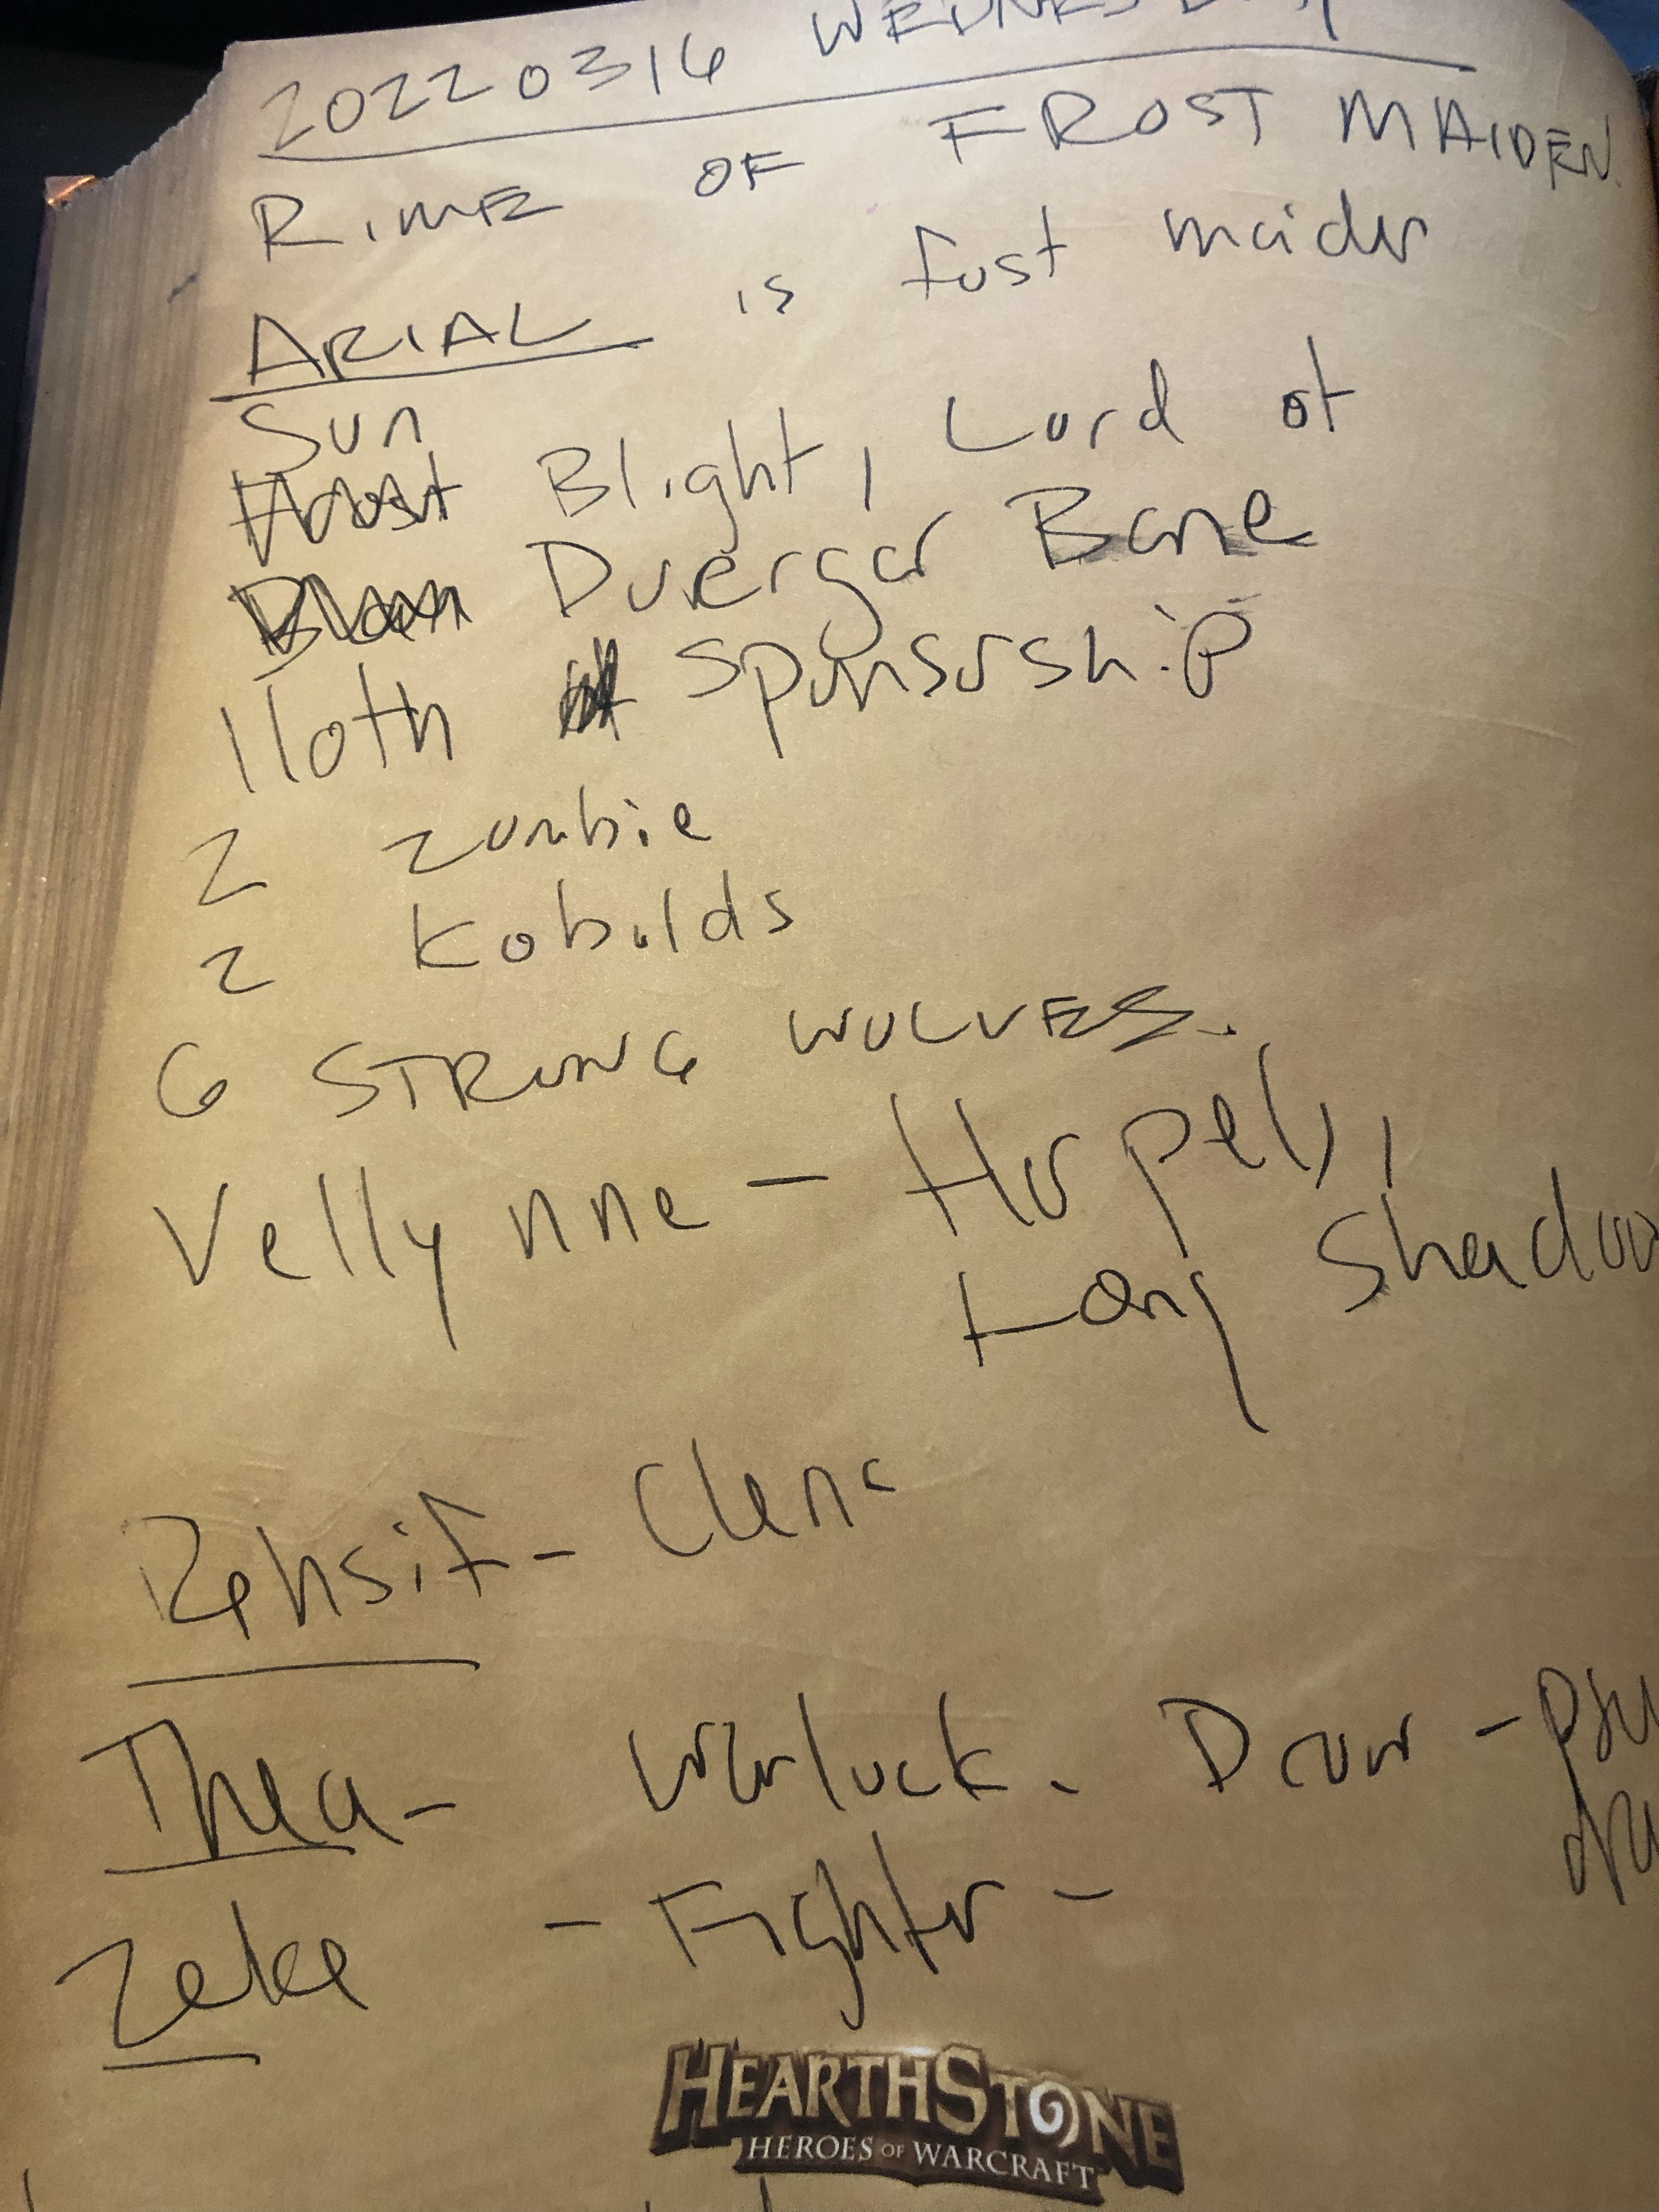 20220316 WEDNESDAY
RIME OF FROST MAIDEN
ARIAL is frost maider
Sun
Frost Blight, Lord of
Duergar Bane
Iloth sponsorship
2 zombie
2 Kobolds
6 STRONG WOLVES.
Vellynne - Harpell,
Long Shadow
Rehsif - Cleric
Thea - Warlock. Drow -
Zeke - Fighter -
HEARTHSTONE
HEROES OF WARCRAFT